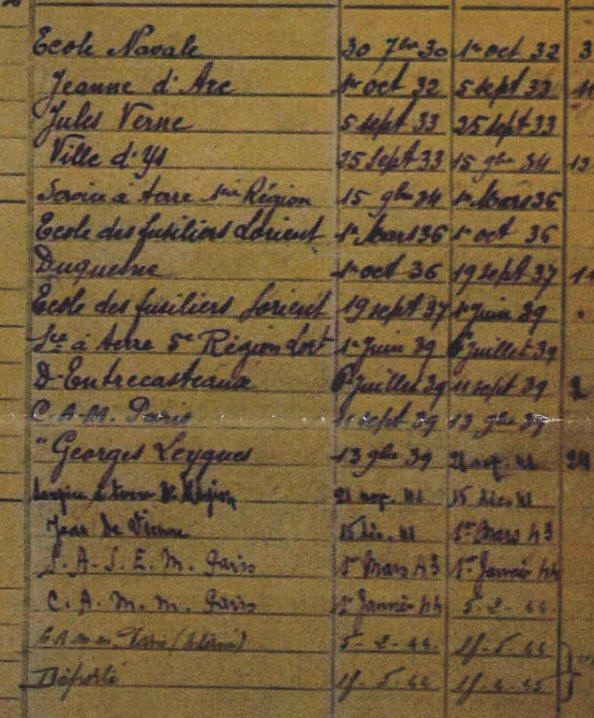 Ecole Navale 30 7bre 30 1er oct 32 3
Jeanne d'Arc 1er oct 32 5 sept 33
Jules Verne 5 sept 33 25 sept 33
Ville d'Ys 25 Sept 33 15 9bre 34 13
Service à terre Région 15 9bre 34 1er Mars 36
Ecole des fusiliers Lorient 1er Mars 36 1er oct 36
Duquesne 1er oct 36 19 sept 37 11
Ecole des fusiliers Lorient 19 sept 37 1er Juin 39
Sce à terre 5e Région Lort 1er Juin 39 6 Juillet 39
D'Entrecasteaux 6 Juillet 39 11 sept 39 2
C.A.M. Paris 11 sept 39 13 9bre 39
" Georges Leygues 13 9bre 39 21 nov. 41 24
Service à terre Région 21 nov. 41 15 déc. 41
Jean de Vienne 15 déc. 41 1er Mars 43
S.A.S.E.M. Paris 1er Mars 43 1er Janvier 44
C.A.M.M. Paris 1er Janvier 44 5-2-44
C.A.M.M. Paris (interné) 5-2-44 15-5-44
Déporté 15-5-44